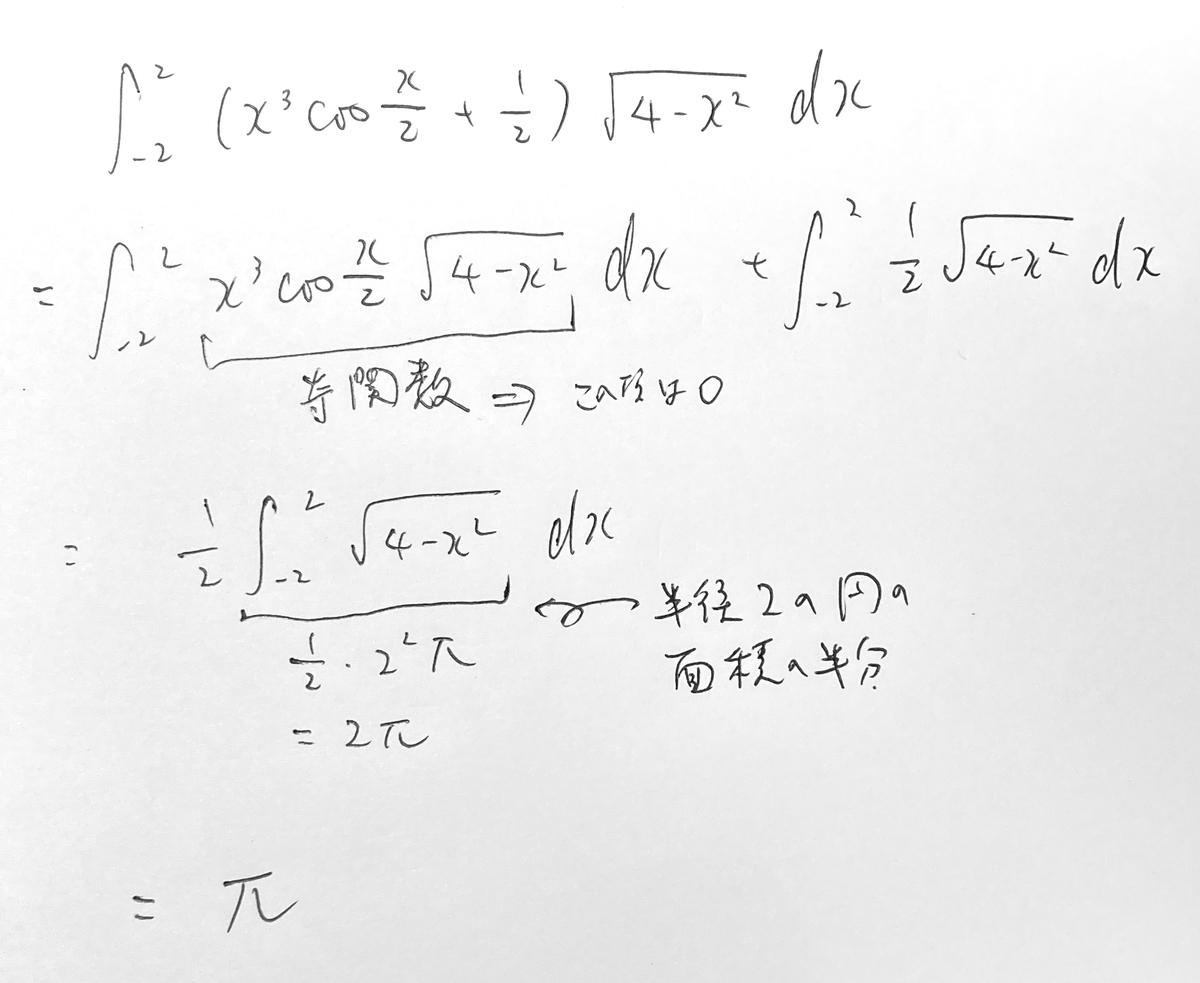 ∫_{-2}^{2} (x³ cos x/2 + 1/2) √(4-x²) dx
= ∫_{-2}^{2} x³ cos x/2 √(4-x²) dx + ∫_{-2}^{2} 1/2 √(4-x²) dx
寄関数 ⇒ この項は0
= 1/2 ∫_{-2}^{2} √(4-x²) dx
半径2の円の
面積の半分
1/2 · 2²π
= 2π
= π